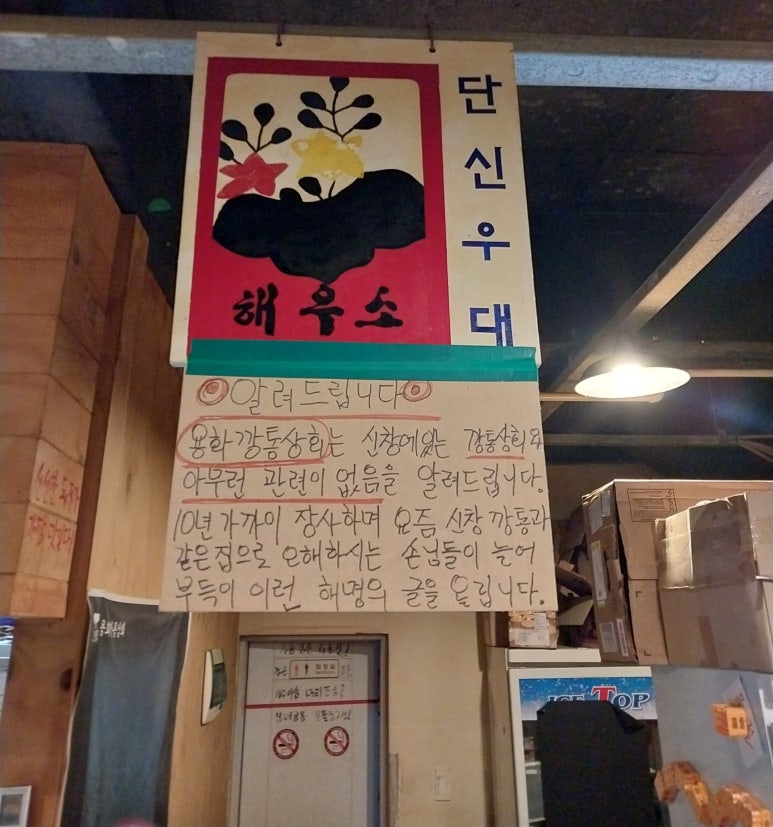 단신우대
해우소
알려드립니다
용화깡통상회는 신창에있는 깡통상회와
아무런 관련이 없음을 알려드립니다.
10년 가까이 장사하며 요즘 신창 깡통과
같은집으로 오해하시는 손님들이 늘어
부득이 이런 해명의 글을 올립니다.
화장실
ICE TOP